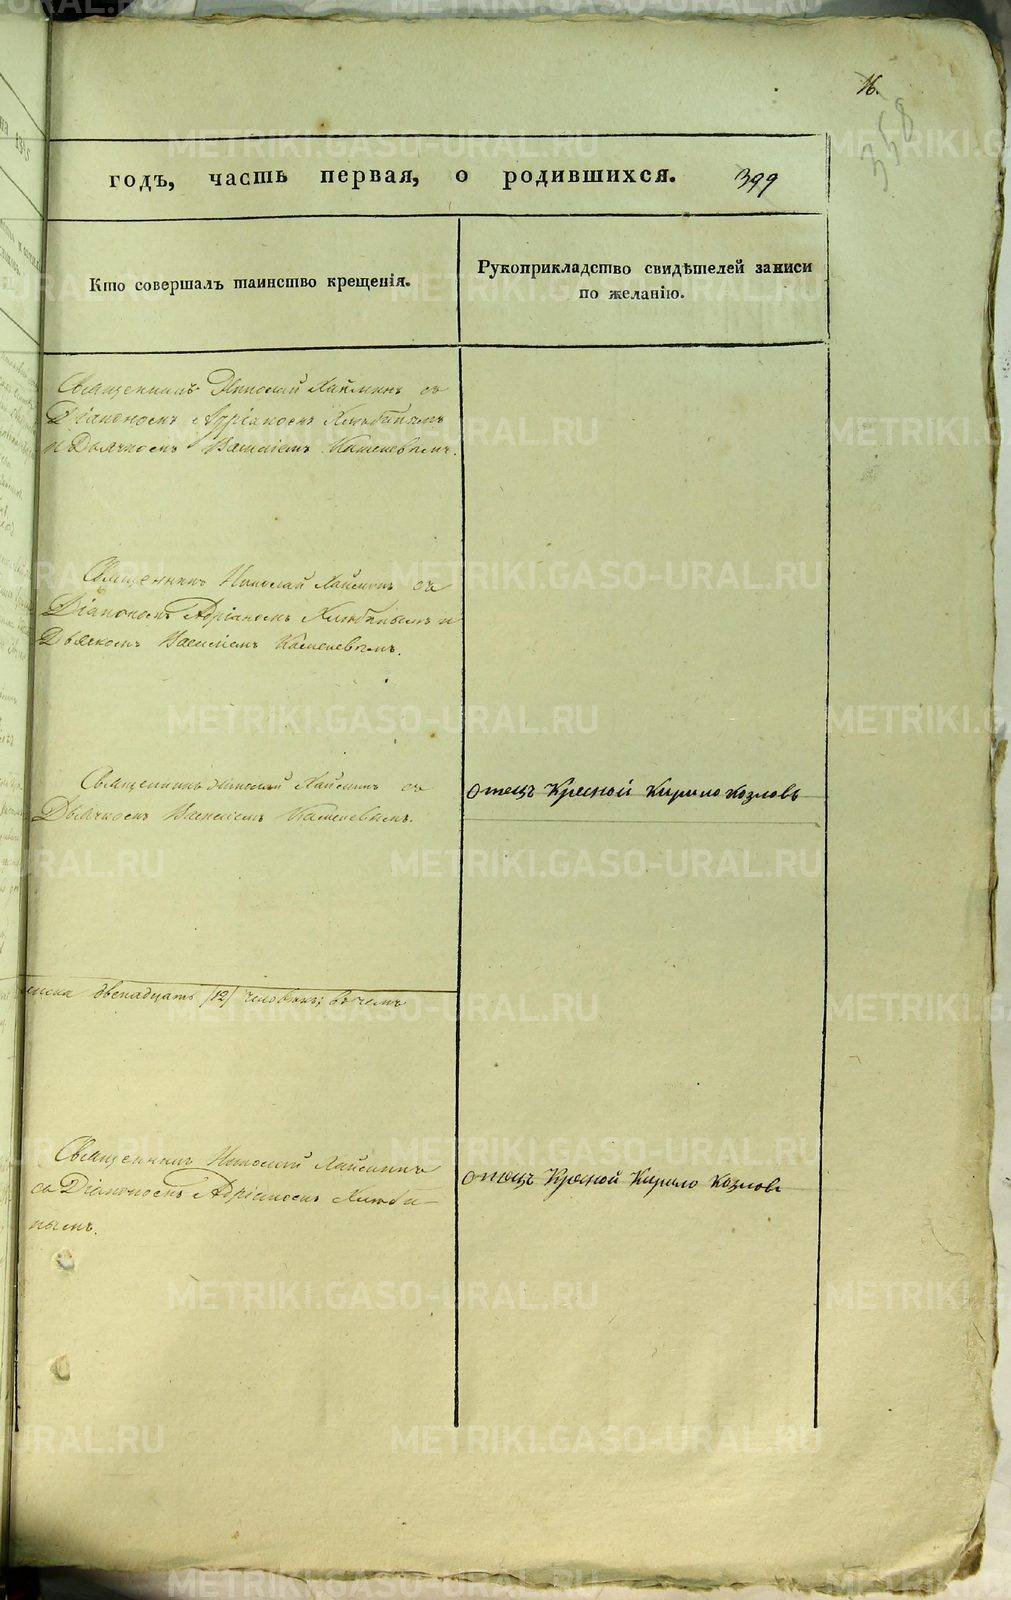 16.
358
годъ, часть первая, о родившихся. 399
Кто совершалъ таинство крещенія.
Рукоприкладство свидѣтелей записи
по желанію.
Священникъ Николай съ
Діакономъ Адріаномъ
и Дьячкомъ Василіемъ Каменевымъ.
Священникъ Николай съ
Діакономъ Адріаномъ и
Дьячкомъ Василіемъ Каменевымъ.
Священникъ Николай съ
Дьячкомъ Василіемъ Каменевымъ.
отецъ Кресной Кирило Козловъ
двенадцать /12/ человѣкъ; въ чемъ
Священникъ Николай
съ Діакономъ Адріаномъ
нымъ.
отецъ Кресной Кирило Козловъ
METRIKI.GASO-URAL.RU